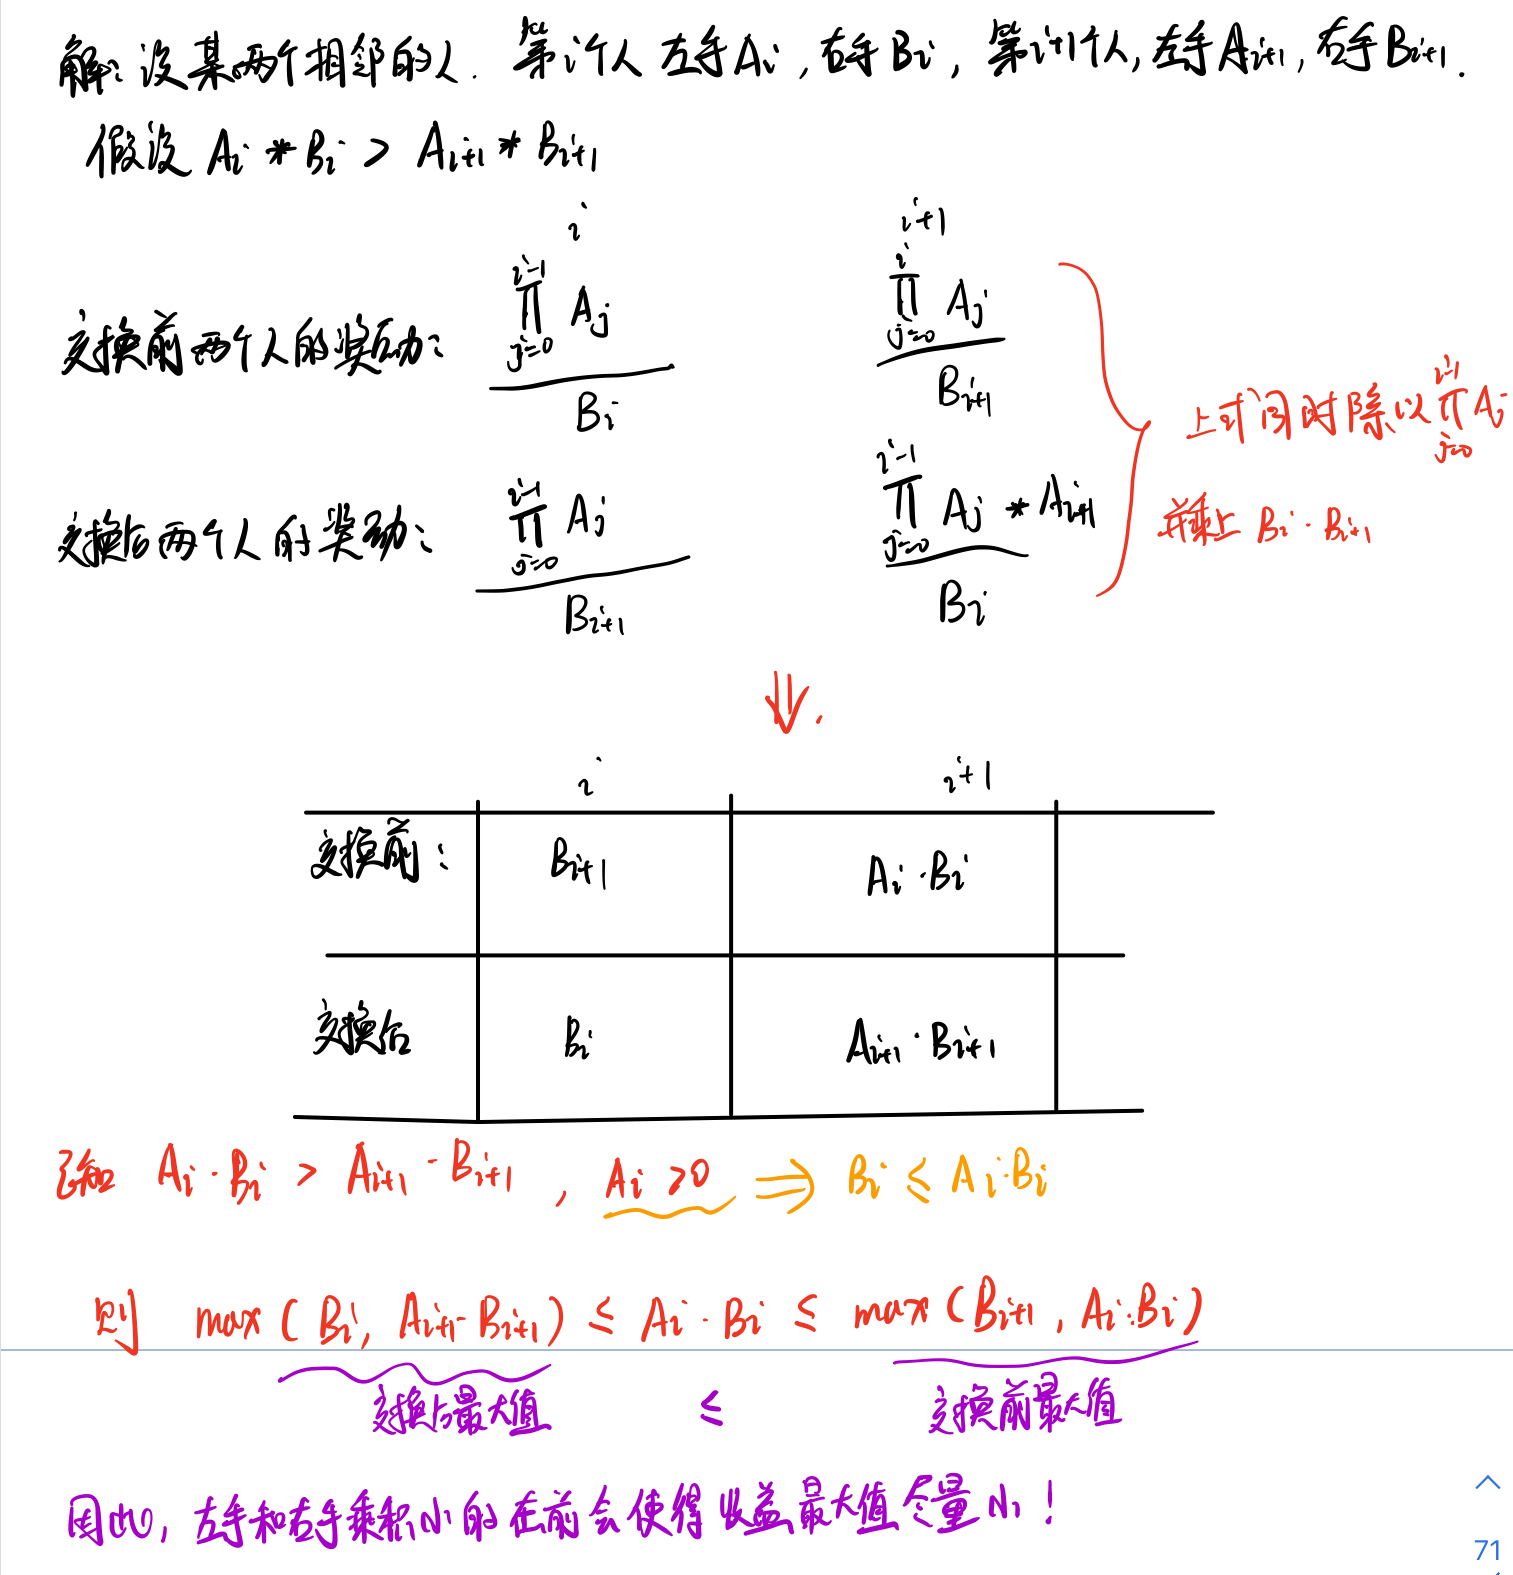 解：设某两个相邻的人. 第i个人 左手Ai，右手Bi，第i+1个人，左手Ai+1，右手Bi+1.
假设 Ai * Bi > Ai+1 * Bi+1
i i+1
交换前两个人的奖励： ∏_{j=0}^{i-1} Aj / Bi ∏_{j=0}^{i} Aj / Bi+1
上式同时除以 ∏_{j=0}^{i-1} Aj
交换后两个人的奖励： ∏_{j=0}^{i-1} Aj / Bi+1 ∏_{j=0}^{i-1} Aj * Ai+1 / Bi
并乘上 Bi · Bi+1
⇓.
i i+1
交换前： Bi+1 Ai · Bi
交换后 Bi Ai+1 · Bi+1
已知 Ai · Bi > Ai+1 · Bi+1 , Ai >0 ⇒ Bi ≤ Ai·Bi
则 max ( Bi, Ai+1·Bi+1 ) ≤ Ai · Bi ≤ max ( Bi+1 , Ai·Bi )
交换后最大值 ≤ 交换前最大值
因此，左手和右手乘积小的在前会使得收益最大值尽量小！
71